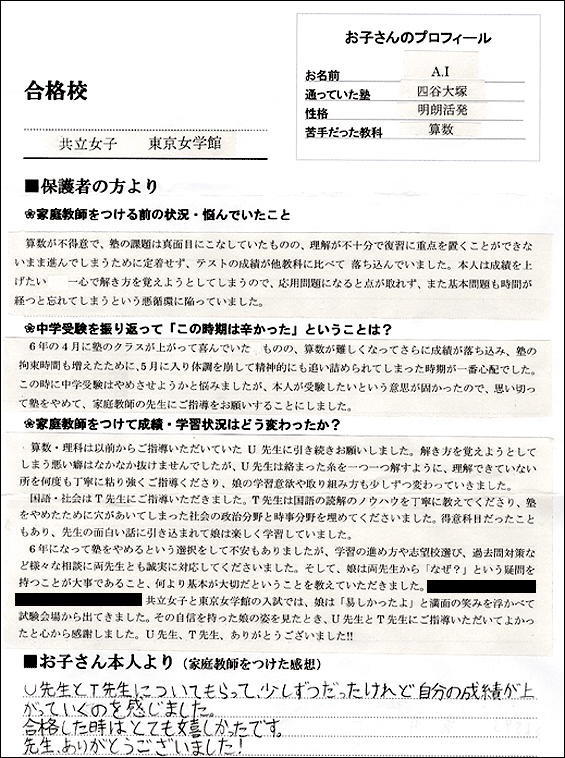 お子さんのプロフィール
お名前 A.I
通っていた塾 四谷大塚
性格 明朗活発
苦手だった教科 算数
合格校
共立女子 東京女学館
■保護者の方より
❀家庭教師をつける前の状況・悩んでいたこと
算数が不得意で、塾の課題は真面目にこなしていたものの、理解が不十分で復習に重点を置くことができな
いまま進んでしまうために定着せず、テストの成績が他教科に比べて 落ち込んでいました。本人は成績を上
げたい 一心で解き方を覚えようとしてしまうので、応用問題になると点が取れず、また基本問題も時間が
経つと忘れてしまうという悪循環に陥っていました。
❀中学受験を振り返って「この時期は辛かった」ということは?
6年の4月に塾のクラスが上がって喜んでいた ものの、算数が難しくなってさらに成績が落ち込み、塾の
拘束時間も増えたために、5月に入り体調を崩して精神的にも追い詰められてしまった時期が一番心配でした。
この時に中学受験はやめさせようかと悩みましたが、本人が受験したいという意思が固かったので、思い切っ
て塾をやめて、家庭教師の先生にご指導をお願いすることにしました。
❀家庭教師をつけて成績・学習状況はどう変わったか?
算数・理科は以前からご指導いただいていたU先生に引き続きお願いしました。解き方を覚えようとして
しまう悪い癖はなかなか抜けませんでしたが、U先生は絡まった糸を一つ一つ解すように、理解できていない
所を何度も丁寧に粘り強くご指導くださり、娘の学習意欲や取り組み方も少しずつ変わっていきました。
国語・社会はT先生にご指導いただきました。T先生は国語の読解のノウハウを丁寧に教えてくださり、塾
をやめたために穴があいてしまった社会の政治分野と時事分野を埋めてくださいました。得意科目だったこと
もあり、先生の面白い話に引き込まれて娘は楽しく学習していました。
6年になって塾をやめるという選択をして不安もありましたが、学習の進め方や志望校選び、過去問対策な
ど様々な相談に両先生とも誠実に対応してくださいました。そして、娘は両先生から「なぜ?」という疑問を
持つことが大事であること、何より基本が大切だということを教えていただきました。
共立女子と東京女学館の入試では、娘は「易しかったよ」と満面の笑みを浮かべて
試験会場から出てきました。その自信を持った娘の姿を見たとき、U先生とT先生にご指導いただいてよかっ
たと心から感謝しました。U先生、T先生、ありがとうございました!!
■お子さん本人より(家庭教師をつけた感想)
U先生とT先生についてもらって、少しずつだったけれど自分の成績が上
がっていくのを感じました。
合格した時はとても嬉しかったです。
先生、ありがとうございました!